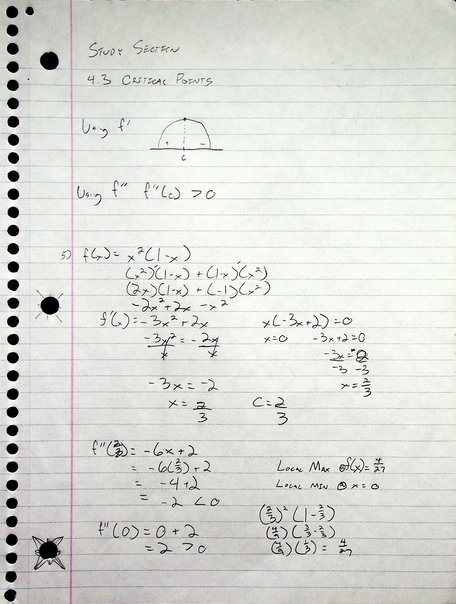 STUDY SECTION
4.3 CRITICAL POINTS
Using f'
+ -
c
Using f'' f''(c) > 0
5) f(x) = x²(1-x)
(x²)'(1-x) + (1-x)'(x²)
(2x)(1-x) + (-1)(x²)
-2x² + 2x - x²
f'(x) = -3x² + 2x x(-3x+2) = 0
-3x² = -2x x=0 -3x+2=0
x x -3x = -2
-3 -3
-3x = -2 x = 2/3
x = 2/3 C = 2/3
f''(2/3) = -6x + 2
= -6(2/3) + 2 LOCAL MAX @ f(x) = 4/27
= -4 + 2 LOCAL MIN @ x = 0
= -2 < 0 (2/3)² (1 - 2/3)
f''(0) = 0 + 2 (4/9)(3/3 - 2/3)
= 2 > 0 (4/9)(1/3) = 4/27